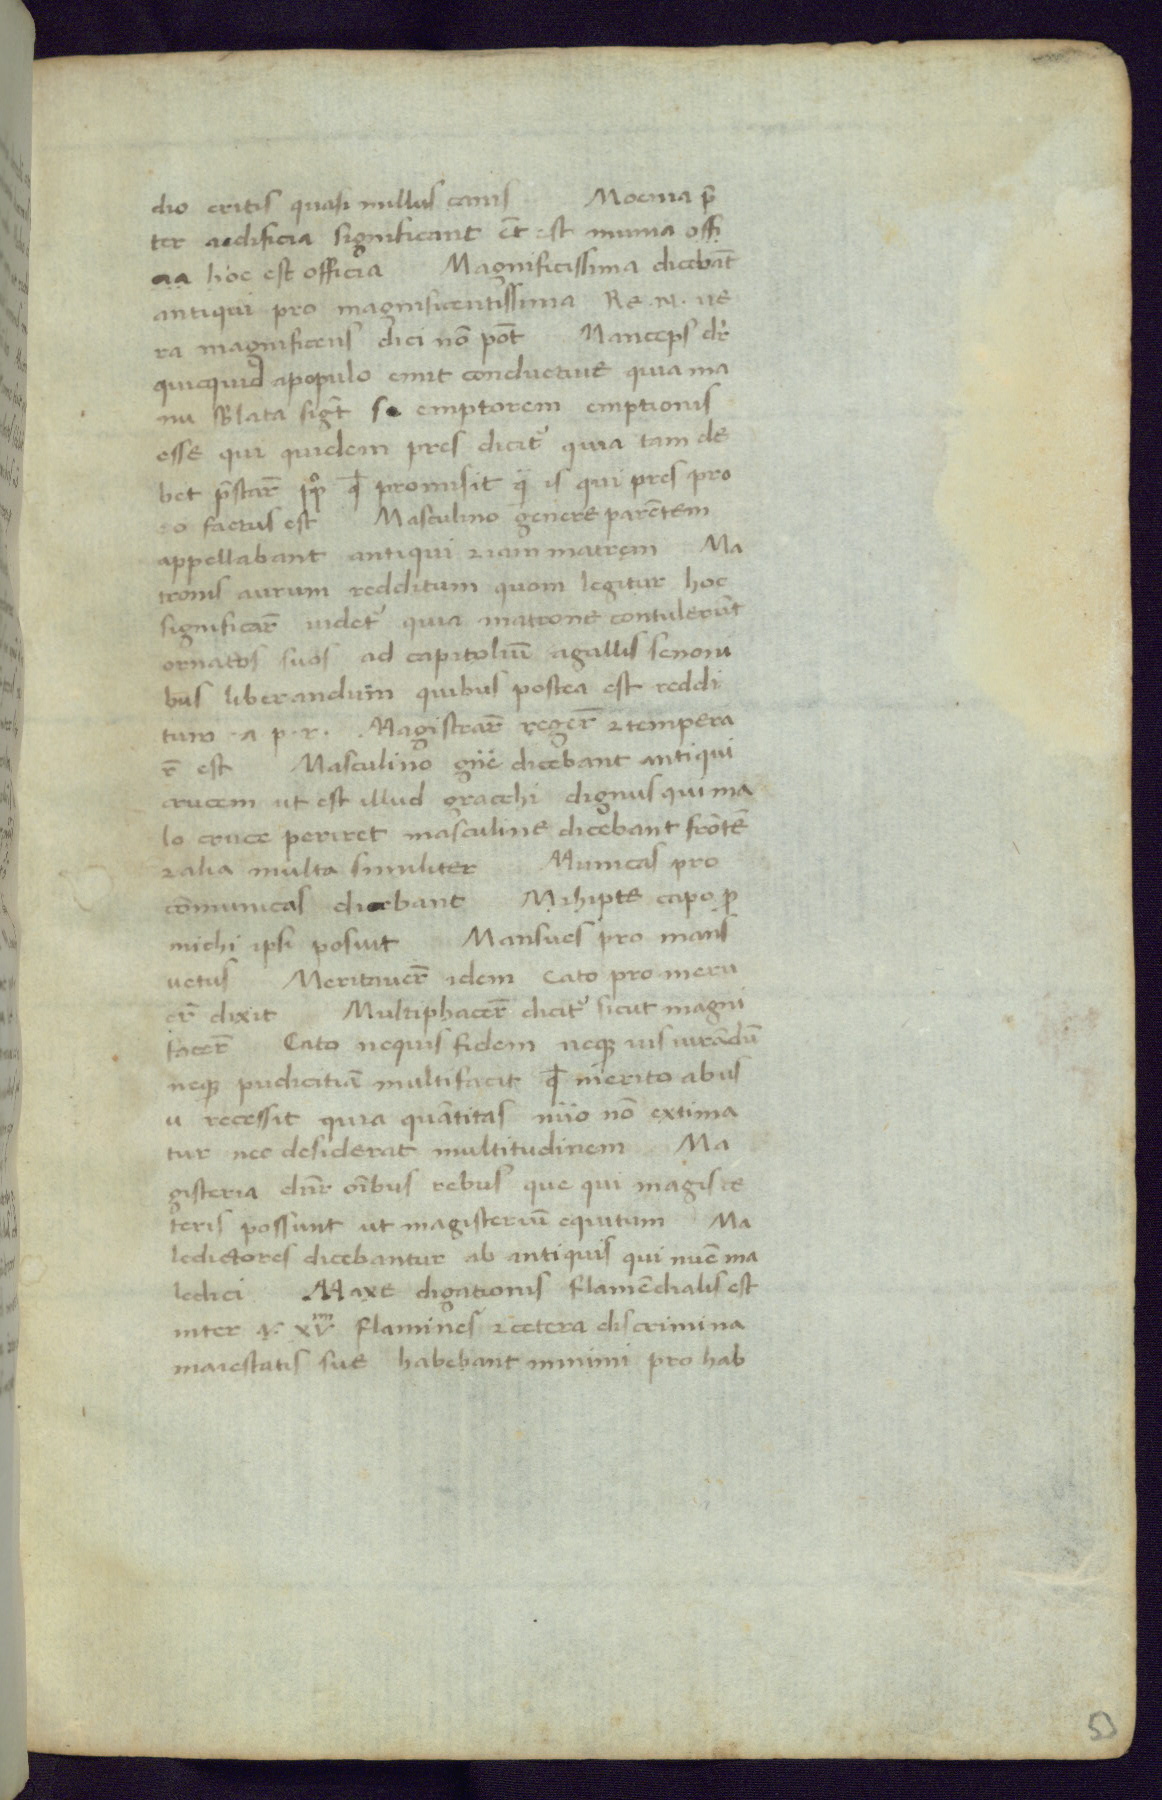 dio eritis quasi millus canis Moenia p̄
ter aedificia significant et̄ est munia offi
aa hoc est officia Magnificissima dicebāt
antiqui pro magnificentissima Re. N. ue
ra magnificus dici nō pōt Manceps dr̄
quicquid apopulo emit conductiue quia ma
nu sblata sigt̄ se emptorem emptionis
esse qui quidem pres dicit᷒ quia tam de
bet p̄star̄ ꝓpͦ ꝙ promisit q̄ is qui pres pro
eo factus est Masculino genere parētem
appellabant antiqui ⁊iam matrem Ma
tronis aurum redditum quom legitur hoc
significar̄ uidet᷒ quia matrone contulerūt
ornatos suos ad capitoliū agallis senoni
bus liberandum quibus postea est reddi
tum a p. r. Magistrar̄ reger̄ ⁊tempera
r̄ est Masculino gn̄e dicebant antiqui
crucem ut est illud gracchi dignus qui ma
lo cruce periret masculine dicebant frōtē
⁊alia multa similiter Municas pro
cōmunicas dicebant Mihipte capo p̄
michi ipsi posuit Mansues pro mans
uetus Meritauer̄ idem Cato pro meru
er̄ dixit Multiphacer̄ dicit᷒ sicut magni
facer̄ Cato nequis fidem neqꝫ ius iurādū
neqꝫ pudicitiā multifacit ꝙ merito abus
u recessit quia quātitas nūo nō extima
tur nec desiderat multitudinem Ma
gisteria dn̄r oībus rebus que qui magis ce
teris possunt ut magisteriū equitum Ma
ledictores dicebantur ab antiquis qui nūc ma
ledici Maxe digationis flamē dialis est
inter q. xv flamines ⁊cetera discrimina
maiestatis sue habebant minimi pro hab
53